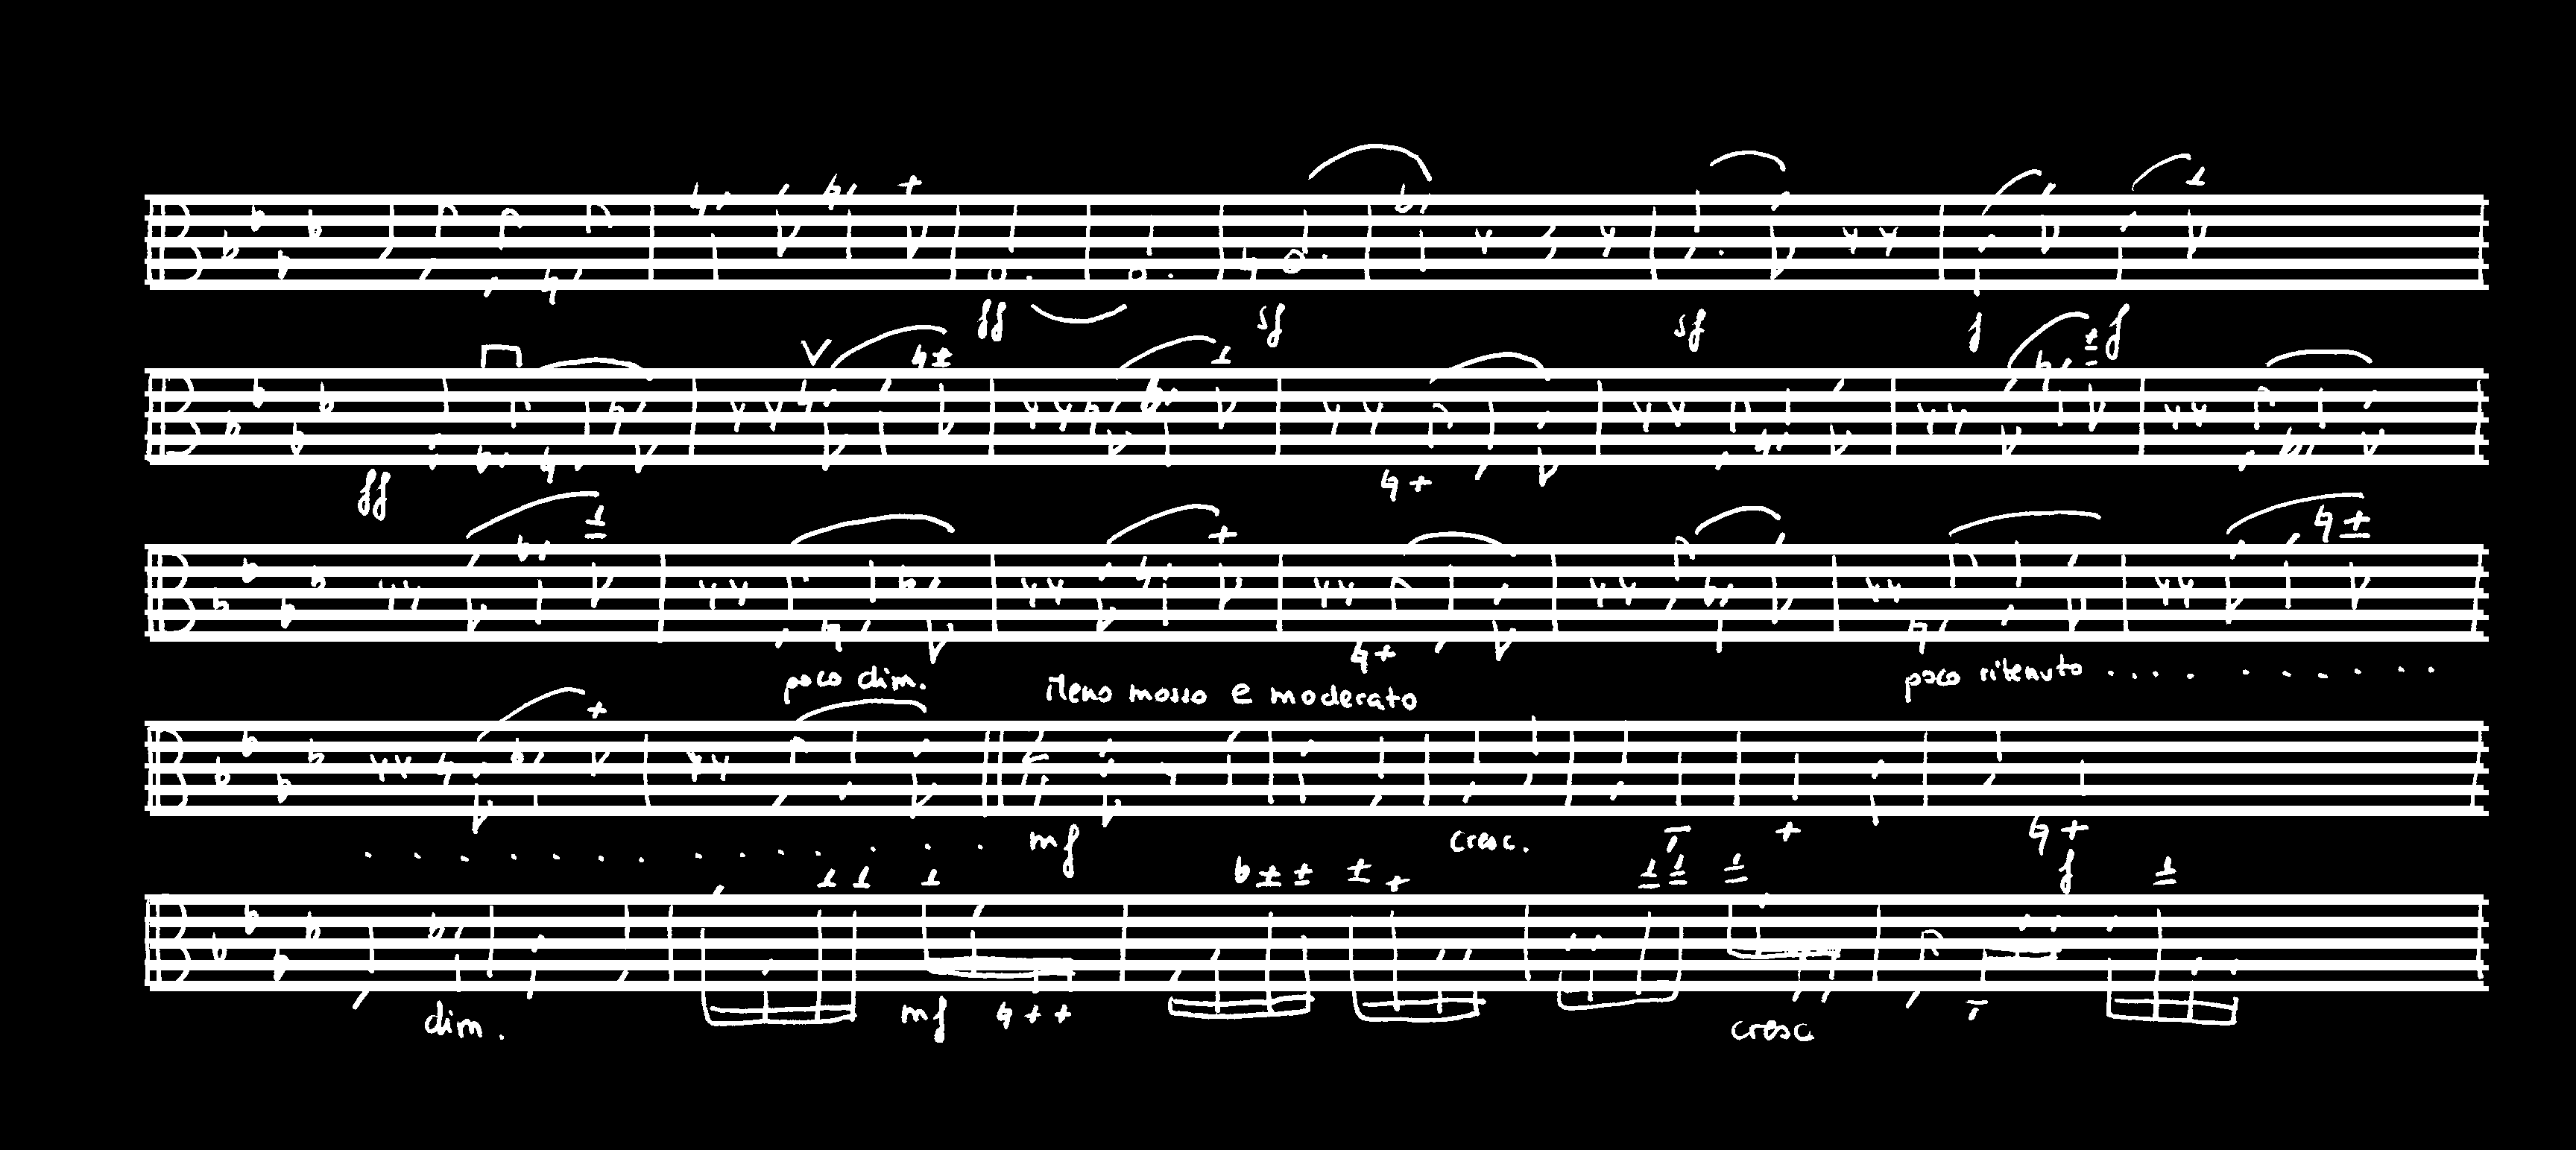 ff sf sf f f
ff
poco dim. Meno mosso e moderato poco ritenuto . . . . . . . . . .
. . . . . . . . . . . . . . mf cresc. f
dim. mf cresc